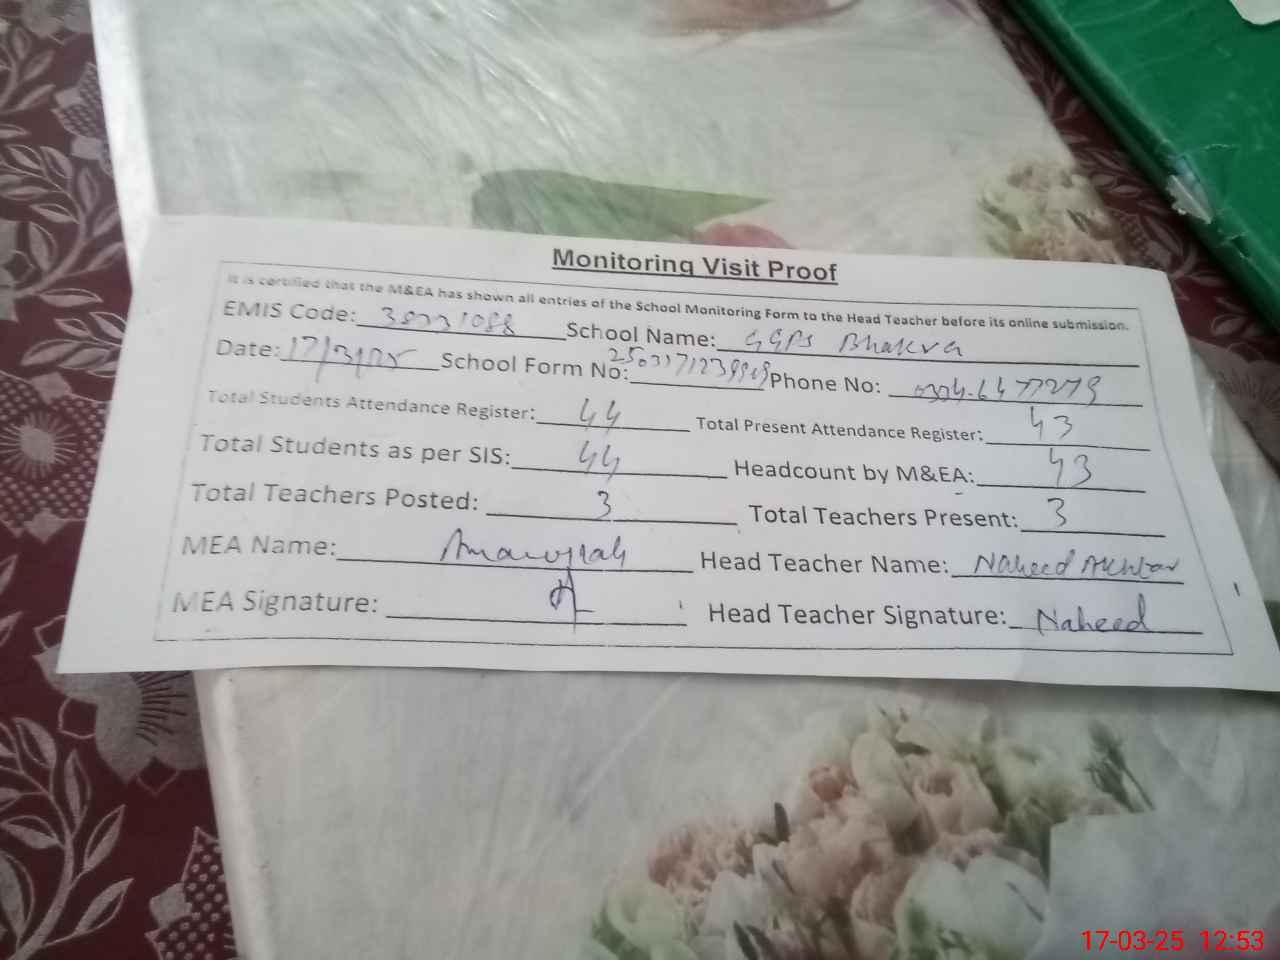 Monitoring Visit Proof
It is certified that the M&EA has shown all entries of the School Monitoring Form to the Head Teacher before its online submission.
EMIS Code: School Name: GGPS Bhakra
Date: 17/3/25 School Form No: Phone No:
Total Students Attendance Register: 44 Total Present Attendance Register: 43
Total Students as per SIS: 44 Headcount by M&EA: 43
Total Teachers Posted: 3 Total Teachers Present: 3
MEA Name: Head Teacher Name: Naheed Akhtar
MEA Signature: Head Teacher Signature: Naheed
17-03-25 12:53